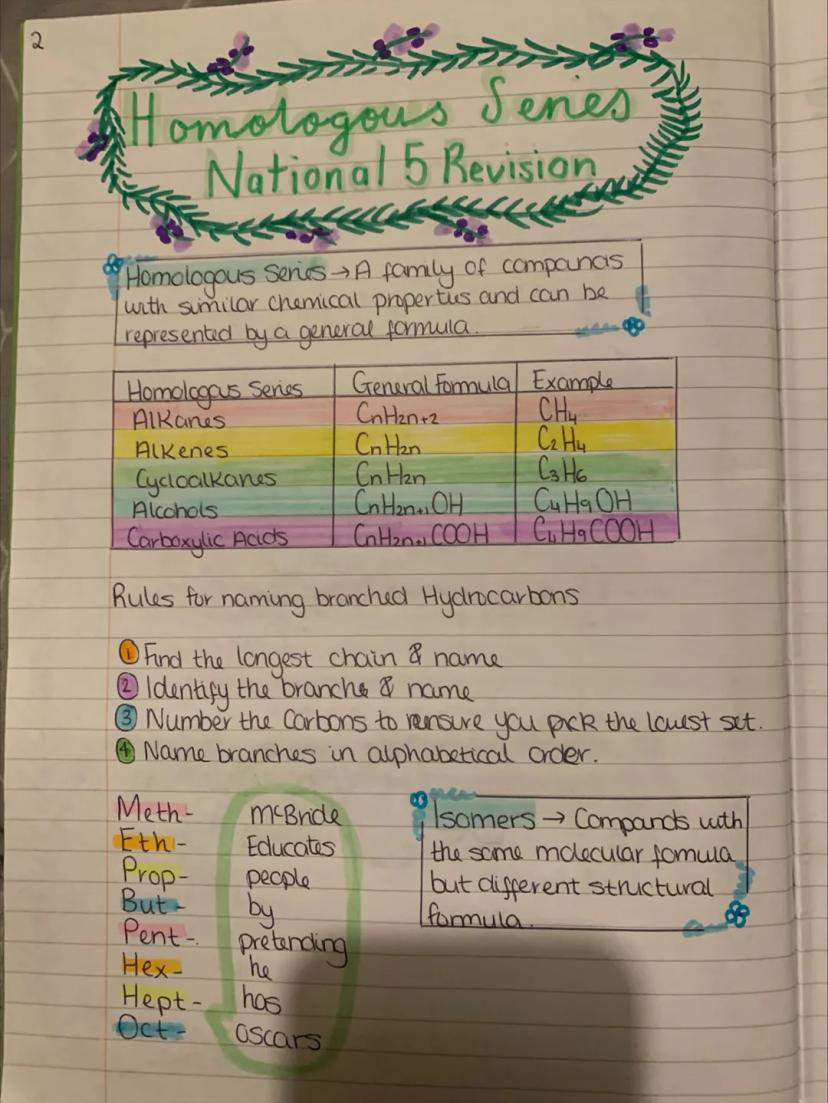 2
Homologous Series
National 5 Revision
Homologous Series → A family of compounds
with similar chemical properties and can be
represented by a general formula.
Homologous Series General Formula Example
Alkanes CnH2n+2 CH4
Alkenes CnH2n C2H4
Cycloalkanes CnH2n C3H6
Alcohols CnH2n+1OH C4H9OH
Carboxylic Acids CnH2n+1COOH C4H9COOH
Rules for naming branched Hydrocarbons
1 Find the longest chain & name
2 Identify the branchs & name
3 Number the Carbons to rensure you pick the lowest set.
4 Name branches in alphabetical order.
Meth- McBride
Eth- Educates
Prop- people
But- by
Pent- pretending
Hex- he
Hept- has
Oct- oscars
Isomers → Compands with
the same molecular fomula
but different structural
formula.